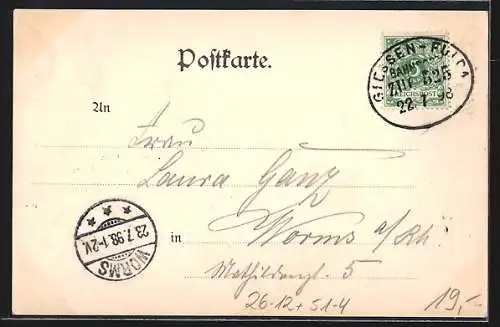 Postkarte.
GIESSEN-FULDA
BAHNPOST
ZUG 525
22.7.98
5
REICHSPOST
An
Frau
Laura Ganz
in Worms a/Rh.
5
23.7.98.1-2V.
WORMS
26-12+51-4
19,-